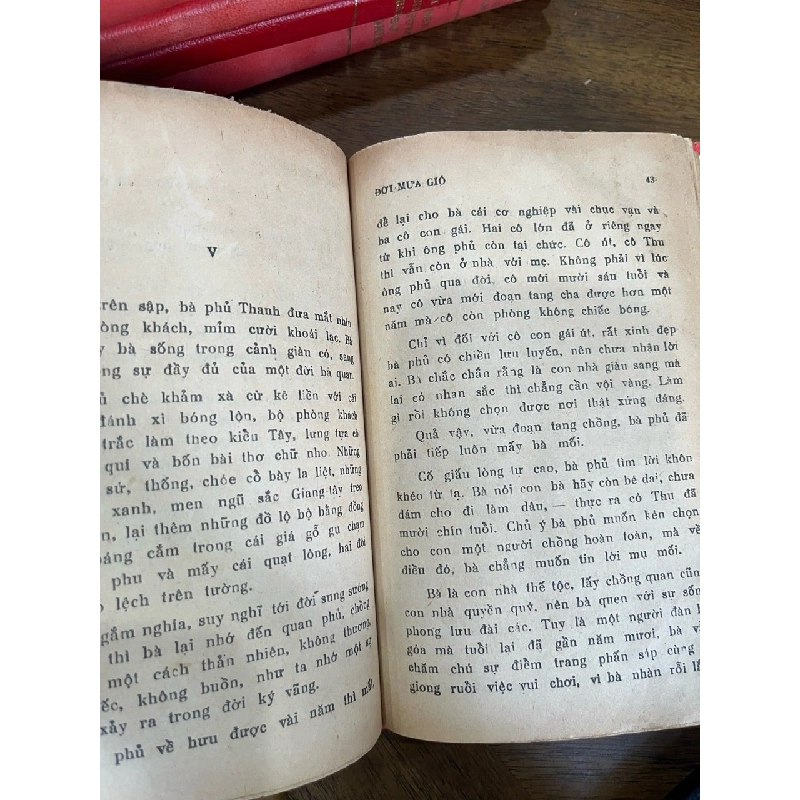 V
trên sập, bà phủ Thanh đưa mắt nhìn
phòng khách, mỉm cười khoái lạc. Bà
bà sống trong cảnh giàn có, sang
sự đầy đủ của một đời bà quan.
chè khảm xà cừ kê liền với cái
đánh xi bóng lộn, bộ phòng khách
trắc làm theo kiều Tây, lưng tựa có
quí và bốn bài thơ chữ nho. Những
sứ, thống, chóe cổ bày la liệt, những
xanh, men ngũ sắc Giang-tây treo
lại thêm những đồ lộ bộ bằng đồng
cắm trong cái giá gỗ gụ chạm
phu và mấy cái quạt lông, hai đôi
lệch trên tường.
ngắm nghía, suy nghĩ tới đời sung sướng
thì bà lại nhớ đến quan phủ, chồng
một cách thản nhiên, không thương,
tiếc, không buồn, như ta nhớ một sự
xảy ra trong đời ký vãng.
phủ về hưu được vài năm thì mất,
ĐỜI MƯA GIÓ 43
đề lại cho bà cái cơ nghiệp vài chục vạn và
ba cô con gái. Hai cô lớn đã ở riêng ngay
từ khi ông phủ còn tại chức. Cô út, cô Thu
thì vẫn còn ở nhà với mẹ. Không phải vì lúc
ông phủ qua đời, cô mới mười sáu tuổi và
nay cô vừa mới đoạn tang cha được hơn một
năm mà cô còn phòng không chiếc bóng.
Chỉ vì đối với cô con gái út, rất xinh đẹp
bà phủ có chiều lưu luyến, nên chưa nhận lời
ai. Bà chắc chắn rằng là con nhà giàu sang mà
lại có nhan sắc thì chẳng cần vội vàng. Làm
gì rồi không chọn được nơi thật xứng đáng.
Quả vậy, vừa đoạn tang chồng, bà phủ đã
phải tiếp luôn mấy bà mối.
Cố giấu lòng tự cao, bà phủ tìm lời khôn
khéo từ tạ. Bà nói con bà hãy còn bé dại, chưa
dám cho đi làm dâu, — thực ra cô Thu đã
mười chín tuổi. Chủ ý bà phủ muốn kén chọn
cho con một người chồng hoàn toàn, mà về
điều đó, bà chẳng muốn tin lời mụ mối.
Bà là con nhà thế tộc, lấy chồng quan cũng
con nhà quyền quý, nên bà quen với sự sống
phong lưu đài các. Tuy là một người đàn
góa mà tuổi lại đã gần năm mươi, bà
chăm chú sự điểm trang phấn sáp cùng
giong ruổi việc vui chơi, vì bà nhàn rỗi